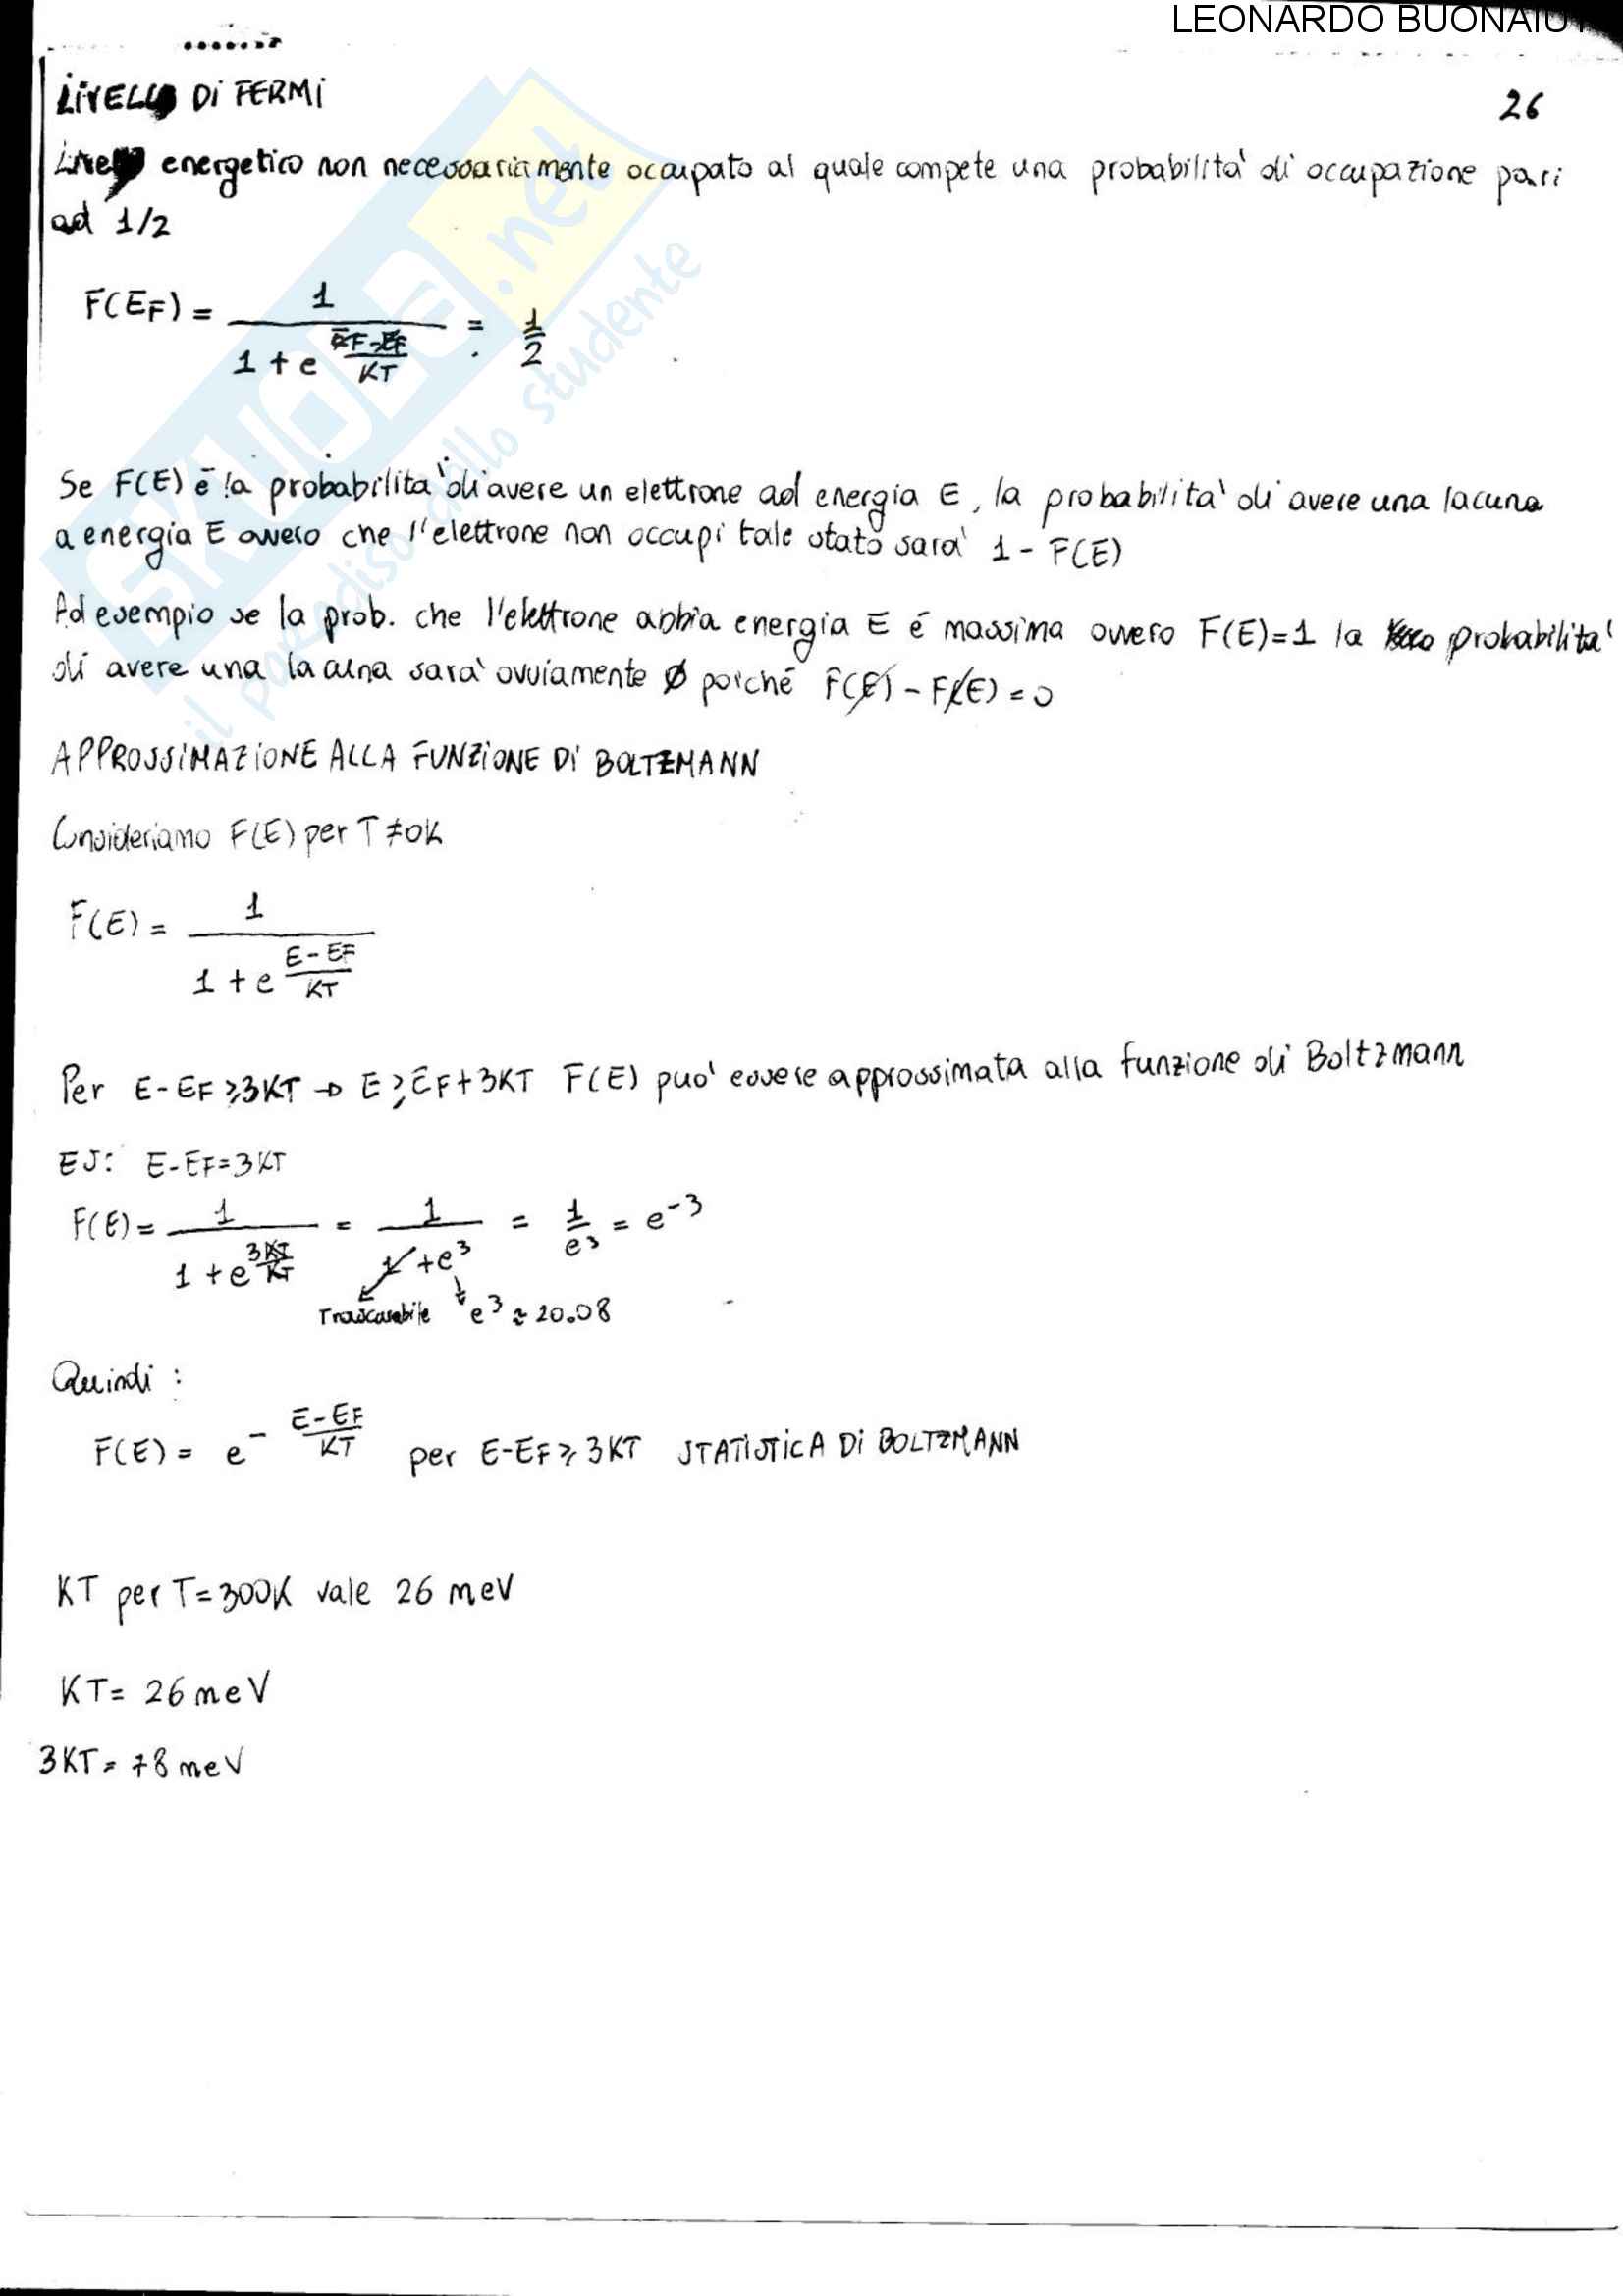 LEONARDO BUONAIUT
LIVELLO DI FERMI
26
Livello energetico non necessariamente occupato al quale compete una probabilita' di occupazione pari
ad 1/2
F(EF) = 1 / (1 + e^((EF-EF)/KT)) = 1/2
Se F(E) è la probabilita' di avere un elettrone ad energia E, la probabilita' di avere una lacuna
a energia E ovvero che l'elettrone non occupi tale stato sara' 1 - F(E)
Ad esempio se la prob. che l'elettrone abbia energia E é massima ovvero F(E)=1 la probabilita'
di avere una lacuna sara' ovviamente Ø poiché F(E) - F(E) = 0
APPROSSIMAZIONE ALLA FUNZIONE DI BOLTZMANN
Consideriamo F(E) per T≠0K
F(E) = 1 / (1 + e^((E-EF)/KT))
Per E-EF≥3KT → E≥EF+3KT F(E) puo' essere approssimata alla funzione di Boltzmann
ES: E-EF=3KT
F(E) = 1 / (1 + e^(3KT/KT)) = 1 / (1 + e³) = 1/e³ = e⁻³
Trascurabile e³ ≈ 20.08
Quindi :
F(E) = e^(-(E-EF)/KT) per E-EF≥3KT STATISTICA DI BOLTZMANN
KT per T=300K vale 26 meV
KT= 26 meV
3KT= 78 meV
SKUOLA.net
il paradiso dello studente